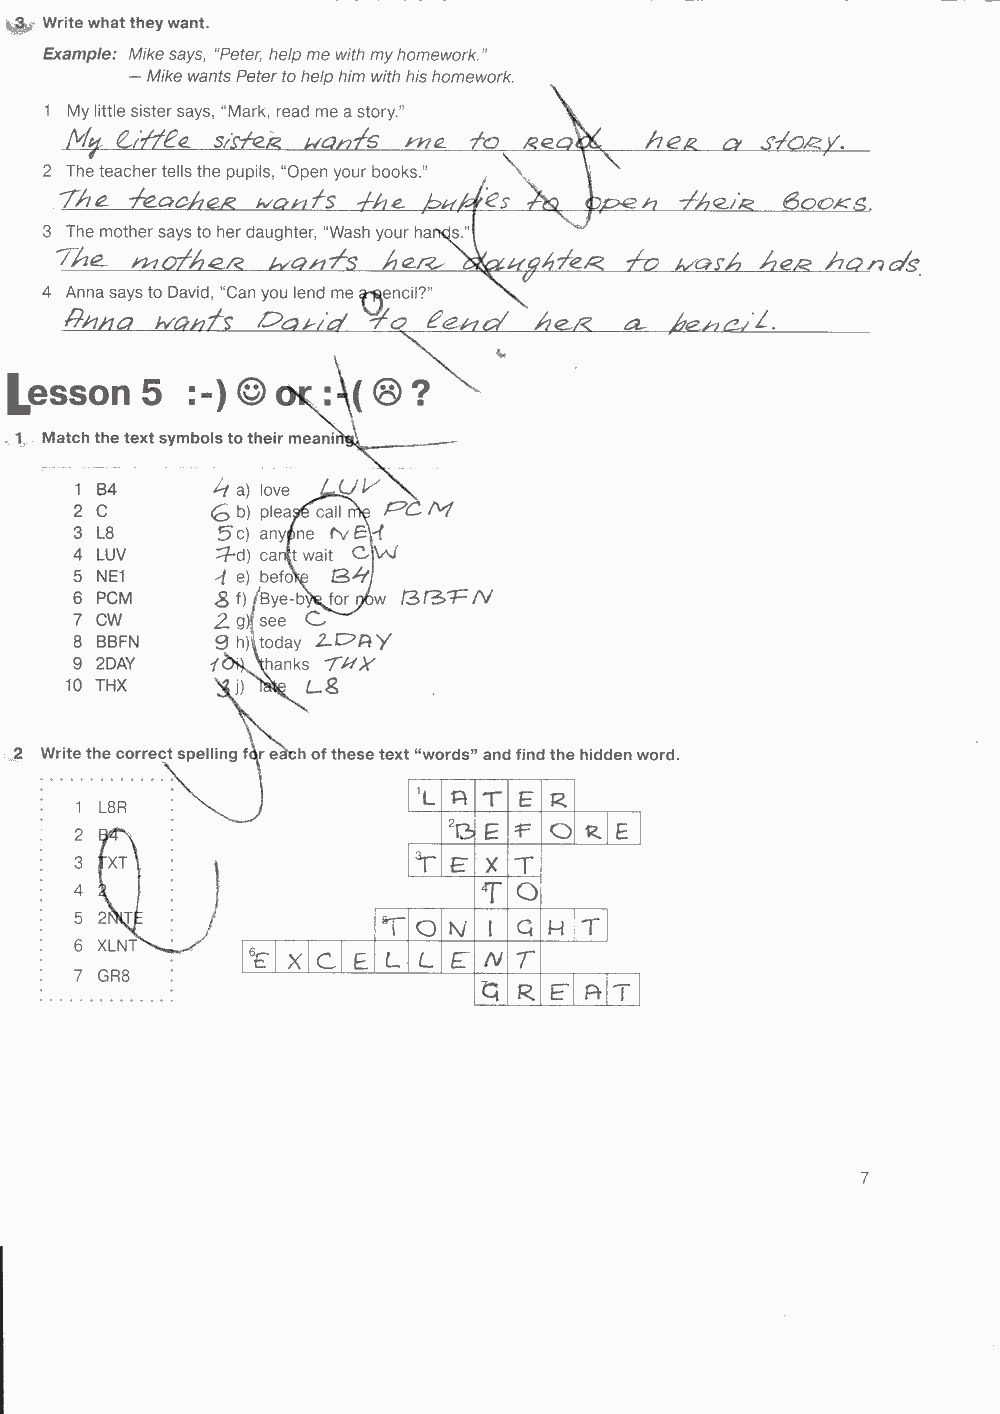 3 Write what they want.
Example: Mike says, “Peter, help me with my homework.”
– Mike wants Peter to help him with his homework.
1 My little sister says, “Mark, read me a story.”
My little sister wants me to read her a story.
2 The teacher tells the pupils, “Open your books.”
The teacher wants the pupies to open their books.
3 The mother says to her daughter, “Wash your hands.”
The mother wants her daughter to wash her hands.
4 Anna says to David, “Can you lend me a pencil?”
Anna wants David to lend her a pencil.
Lesson 5 :-) ☺ or :-( ☹ ?
1 Match the text symbols to their meaning.
1 B4 4 a) love LUV
2 C 6 b) please call me PCM
3 L8 5 c) anyone NE1
4 LUV 7 d) can't wait CW
5 NE1 1 e) before B4
6 PCM 8 f) Bye-bye for now BBFN
7 CW 2 g) see C
8 BBFN 9 h) today 2DAY
9 2DAY 10 i) thanks THX
10 THX 3 j) late L8
2 Write the correct spelling for each of these text “words” and find the hidden word.
1 L8R
2 B4
3 TXT
4 2
5 2NITE
6 XLNT
7 GR8
1 LATER
2 BEFORE
3 TEXT
4 TO
5 TONIGHT
6 EXCELLENT
7 GREAT
7